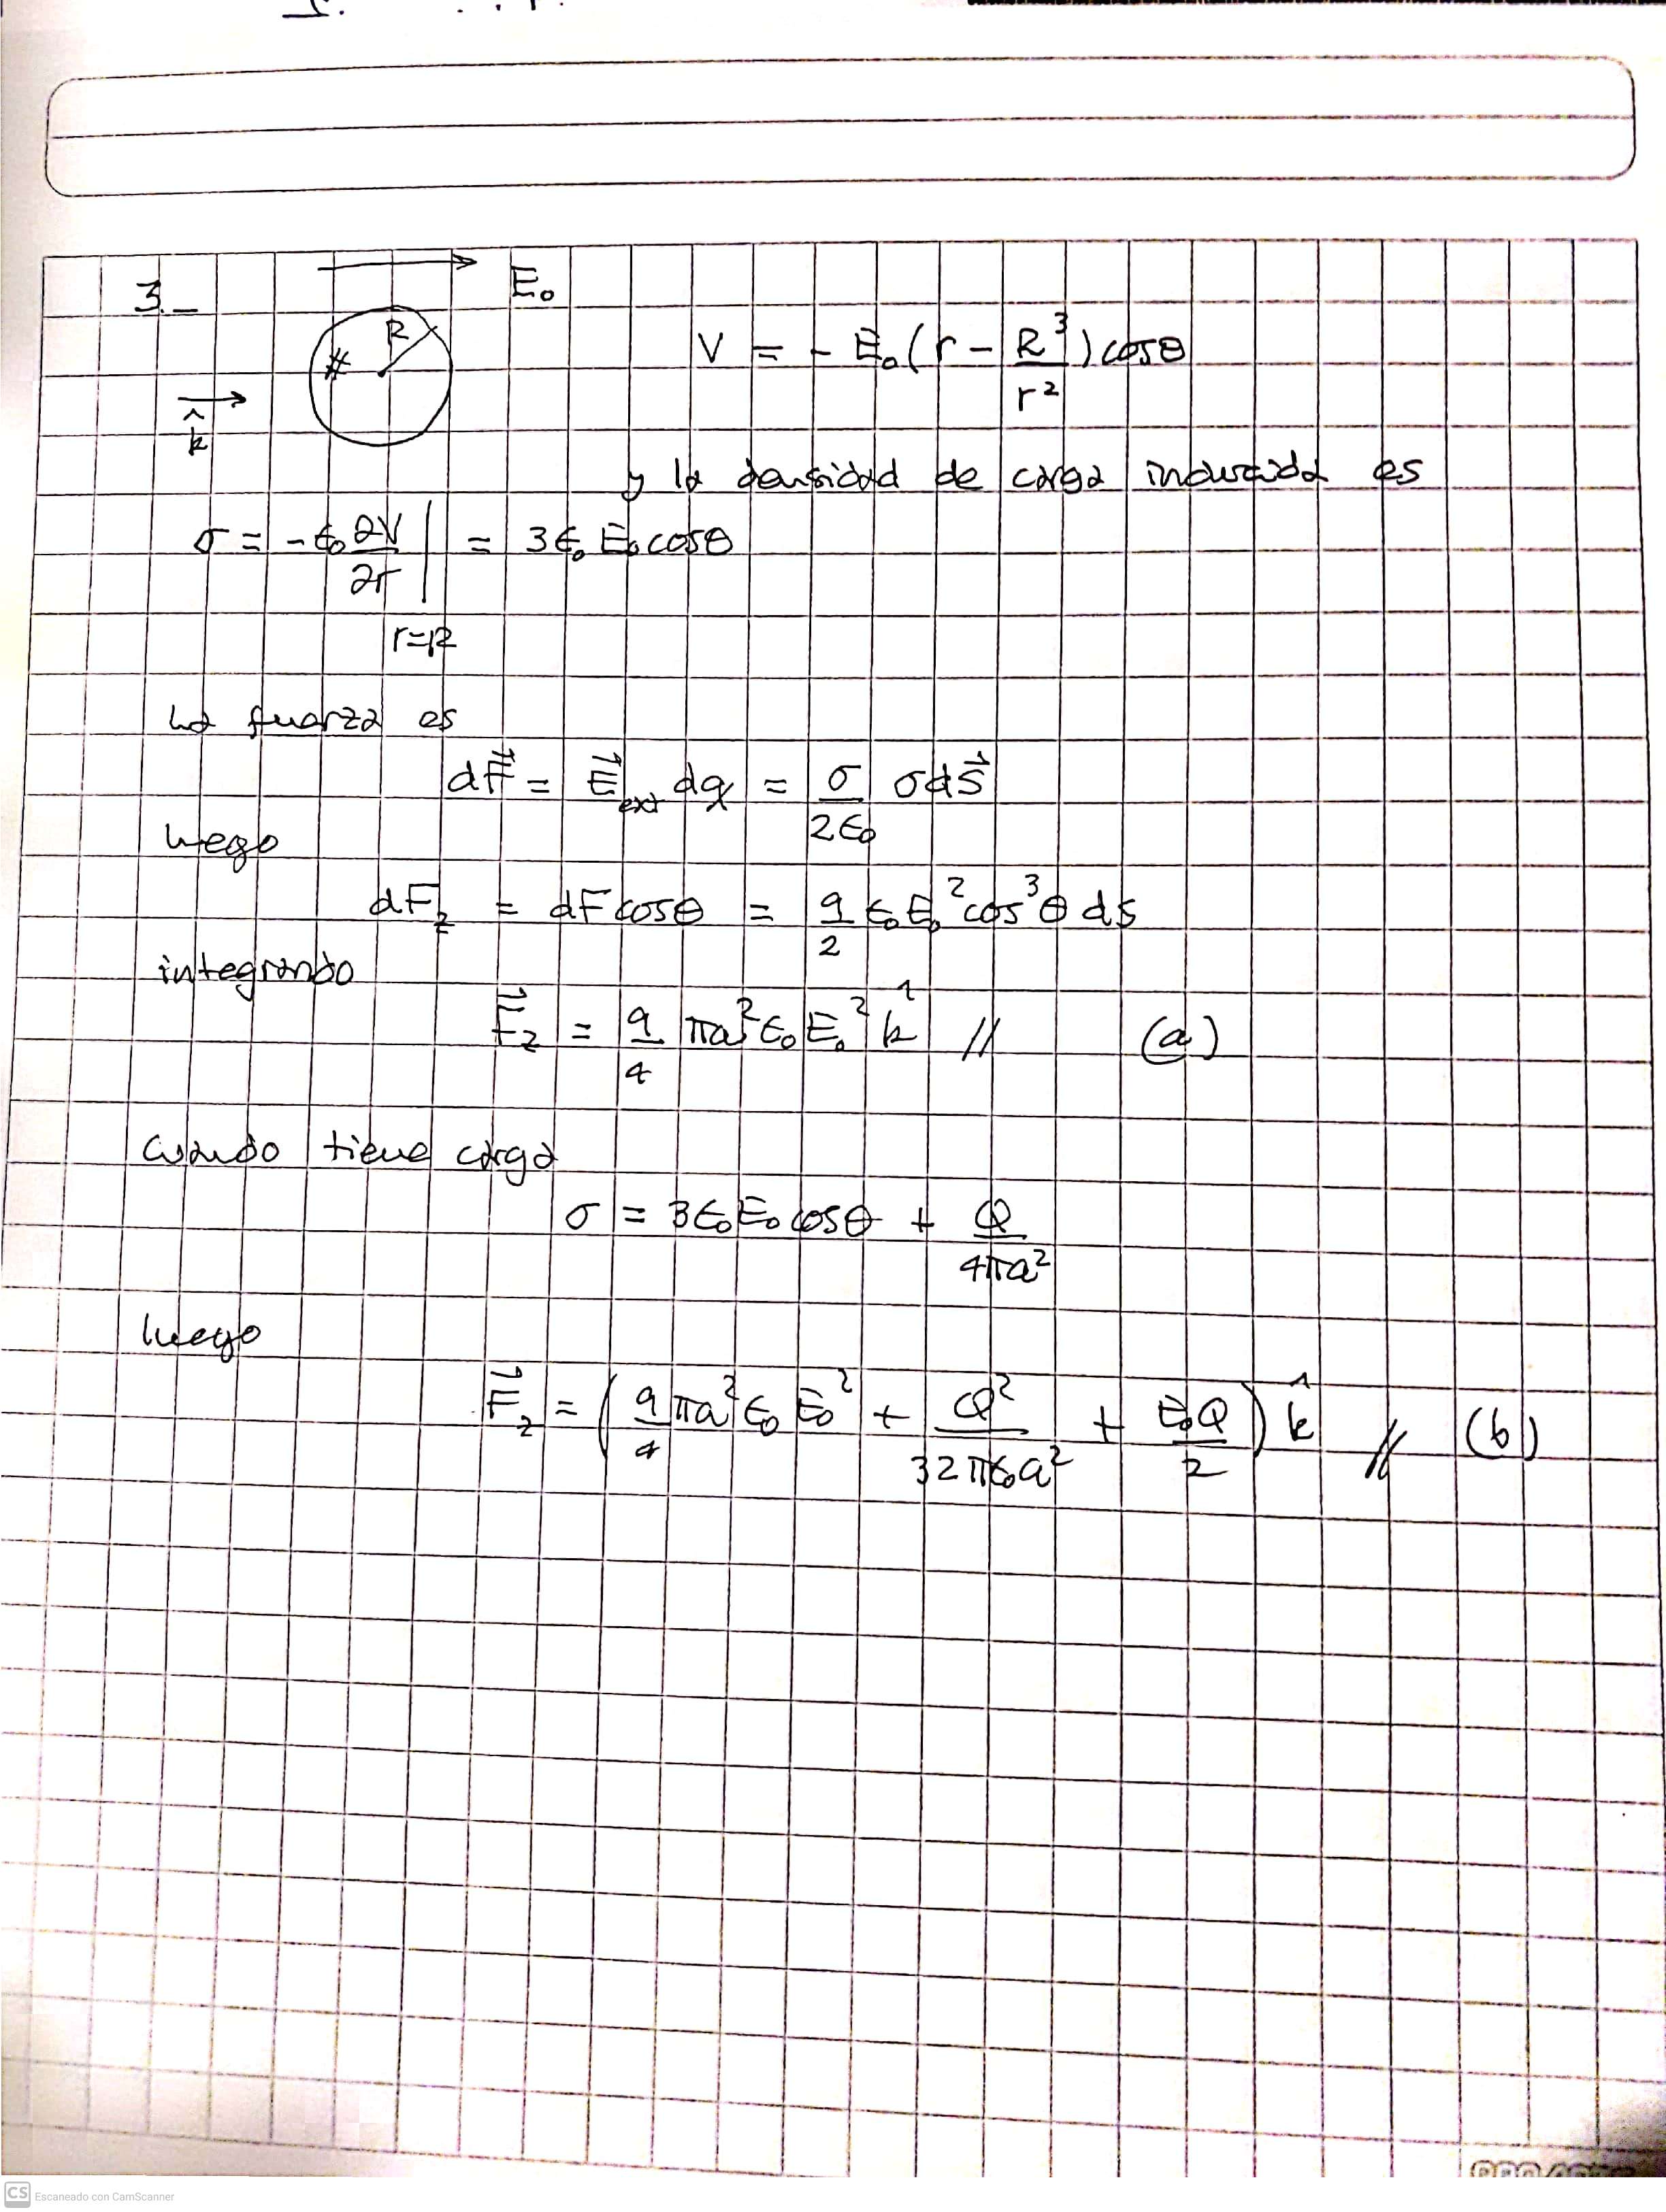 3.-
E₀
R
k̂
V = - E₀(r - R³/r²) cosθ
y la densidad de carga inducida es
σ = -ϵ₀ ∂V/∂r | r=R = 3ϵ₀ E₀ cosθ
La fuerza es
dF⃗ = E⃗ext dq = σ/2ϵ₀ σdS⃗
luego
dF_z = dF cosθ = 9/2 ϵ₀E₀² cos³θ ds
integrando
F⃗_z = 9/4 πa²ϵ₀E₀² k̂ // (a)
Cuando tiene carga
σ = 3ϵ₀E₀ cosθ + Q/4πa²
luego
F⃗_z = (9/4 πa²ϵ₀E₀² + Q²/32πϵ₀a² + E₀Q/2) k̂ // (b)
CS Escaneado con CamScanner